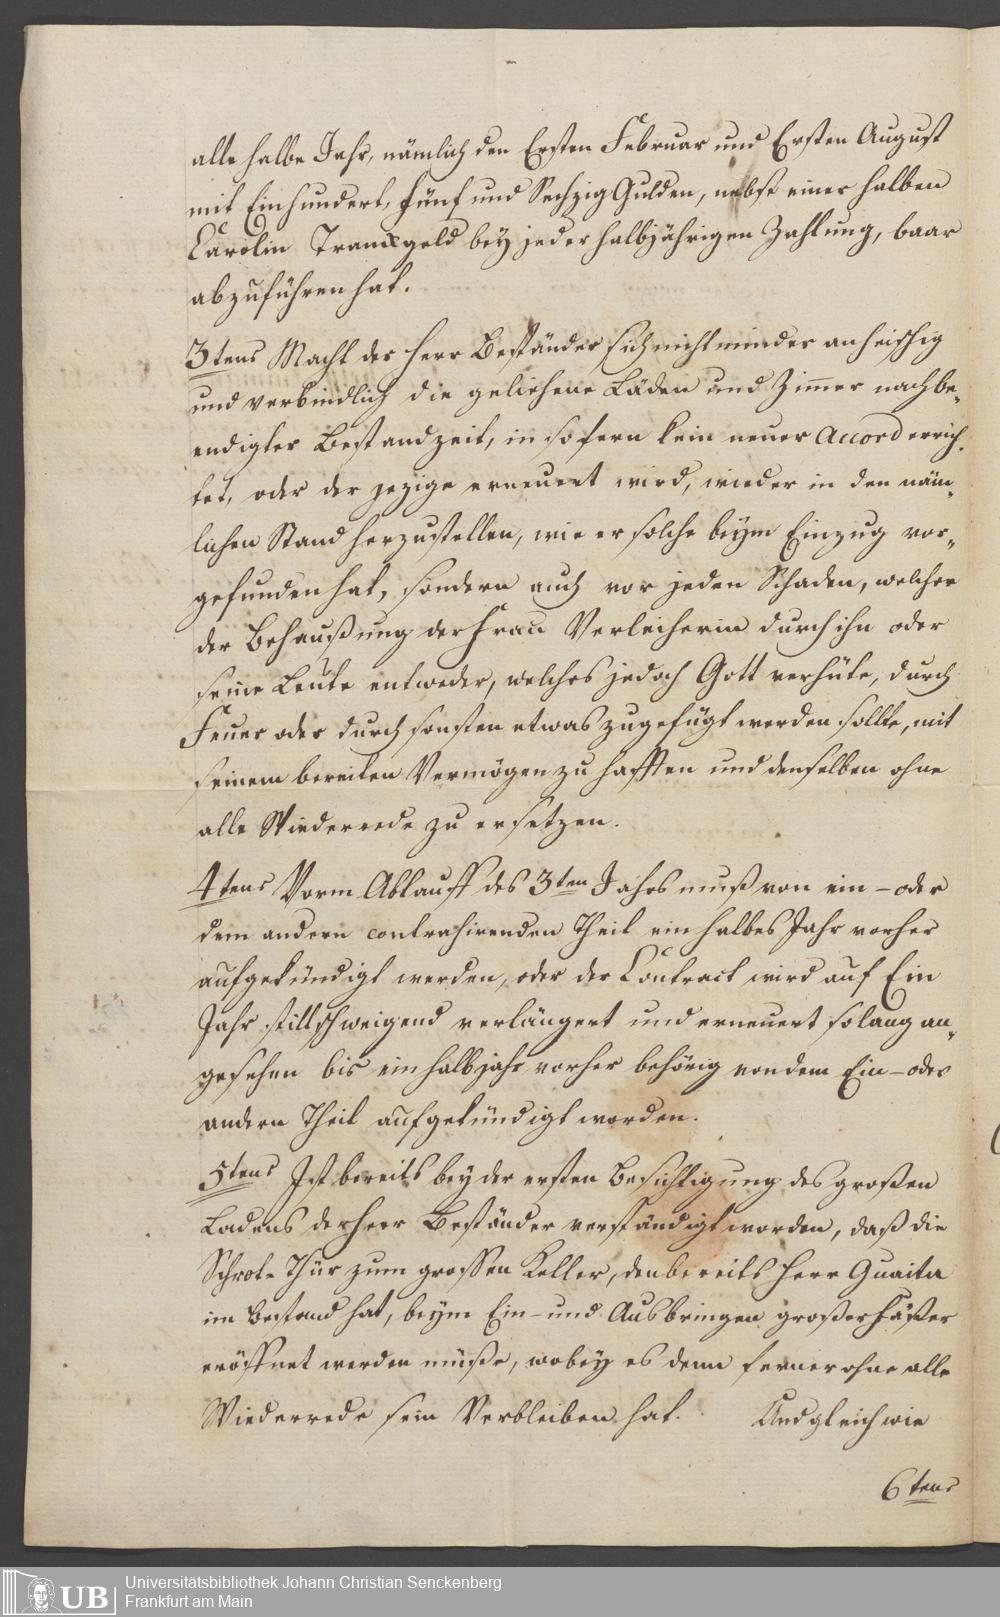 alle halbe Jahr, nämlich den Ersten Februar und Ersten August
mit Einhundert, fünf und Sechzig Gulden, nebst einer halben
Carolin Tranckgeld bey jeder halbjährigen Zahlung, baar
abzuführen hat.
3tens Macht der Herr Beständer sich nicht minder anheischig
und verbindlich die geliehene Läden und Zimmer nach be„
endigter Bestandzeit, in sofern kein neuer Accord errich„
tet, oder der jezige erneuert wird, wieder in den näm„
lichen Stand herzustellen, wie er solche beym Einzug vor„
gefunden hat, sondern auch vor jeden Schaden, welcher
der Behaußung der Frau Verleiherin durch ihn oder
seine Leute entweder, welches jedoch Gott verhüte, durch
Feuer oder durch sonsten etwas zugefügt werden sollte, mit
seinem bereiten Vermögen zu hafften und denselben ohne
alle Wiederrede zu ersetzen.
4tens Vorm Ablauff des 3ten Jahrs muß von ein – oder
dem andern contrahirenden Theil ein halbes Jahr vorher
aufgekündigt werden, oder der Contract wird auf Ein
Jahr stillschweigend verlängert und erneuert so lang an„
gesehen bis ein halbjahr vorher behörig von dem Ein – oder
andern Theil aufgekündigt worden.
5tens Ist bereits bey der ersten Besichtigung des großen
Ladens der Herr Beständer verständigt worden, daß die
Schrot-Thür zum grossen Keller, den bereits Herr Guaita
im Bestand hat, beym Ein – und Ausbringen großer Fäßer
eröffnet werden müße, wobey es denn ferner ohne alle
Wiederrede sein Verbleiben hat. Und gleich wie
6tens
UB
Universitätsbibliothek Johann Christian Senckenberg
Frankfurt am Main